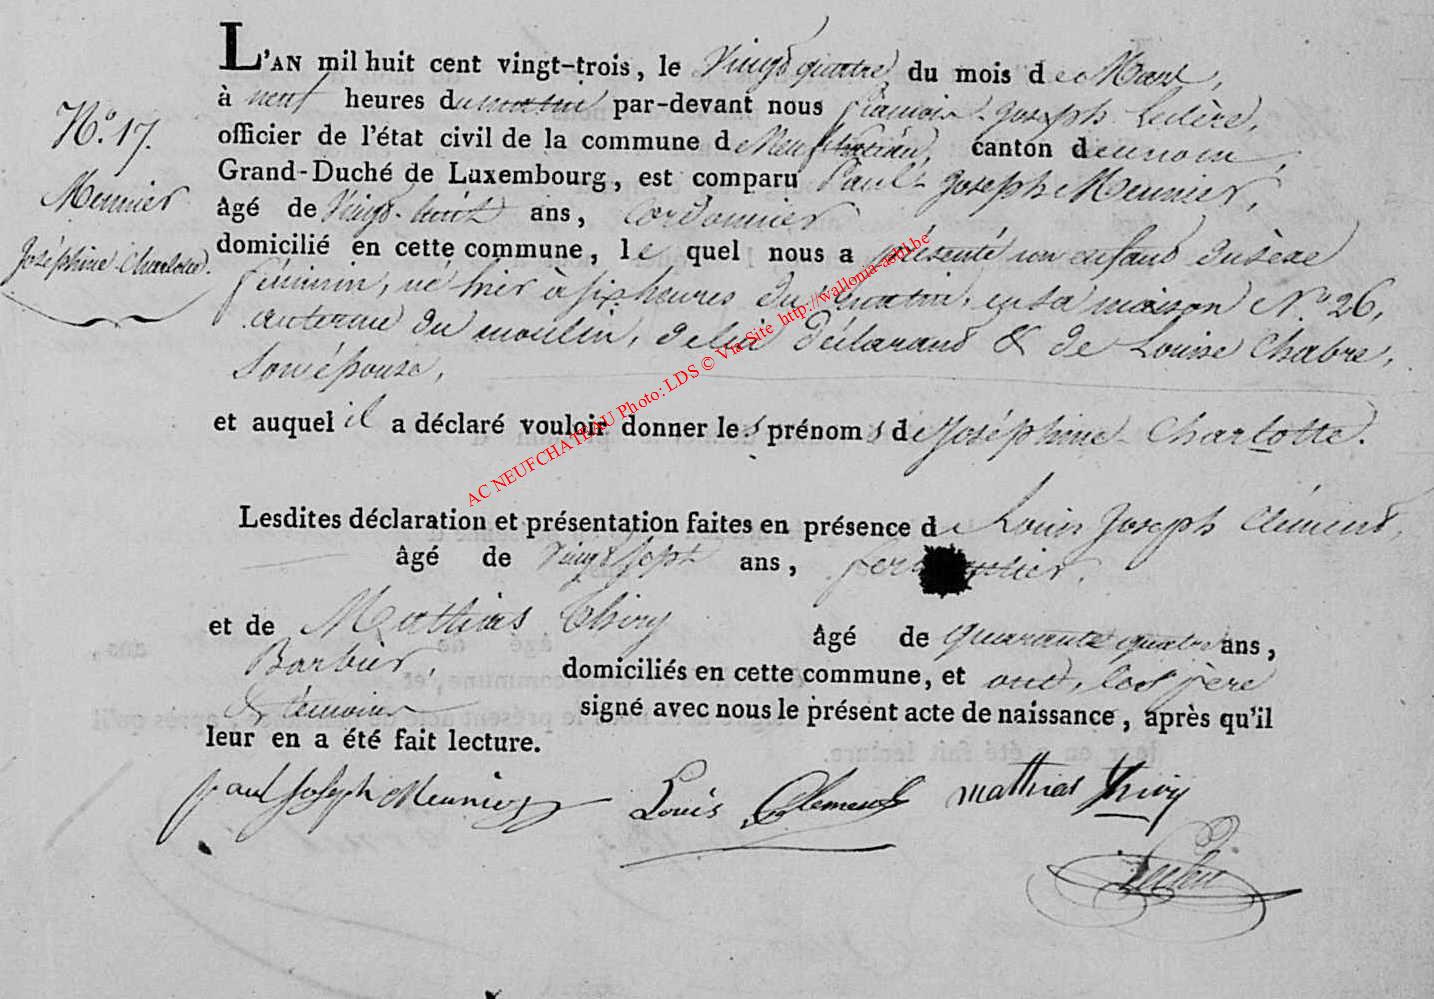 L'AN mil huit cent vingt-trois, le Vingt quatre du mois de Mars,
à neuf heures du matin par-devant nous François Joseph Leclère,
officier de l'état civil de la commune de Neufchateau, canton de
Grand-Duché de Luxembourg, est comparu Paul Joseph Meunier,
âgé de Vingt-huit ans, Cordonnier
domicilié en cette commune, lequel nous a présenté un enfant du sèxe
féminin, né hier à six heures du matin, en sa maison N° 26,
du moulin, de lui déclarant & de Louise Chabre,
son épouse,
et auquel il a déclaré vouloir donner les prénoms de Joséphine Charlotte.
Lesdites déclaration et présentation faites en présence de Louis Joseph Clément,
âgé de vingt sept ans, fer
et de Mathias Thiry âgé de quarante quatre ans,
Barbier, domiciliés en cette commune, et ont, les père
& témoins signé avec nous le présent acte de naissance, après qu'il
leur en a été fait lecture.
paul Joseph Meunier Louis Clement mathias thiry
N° 17.
Meunier
Joséphine Charlotte.
AC NEUFCHATEAU Photo: LDS © Via Site http://wallonia-asbl.be